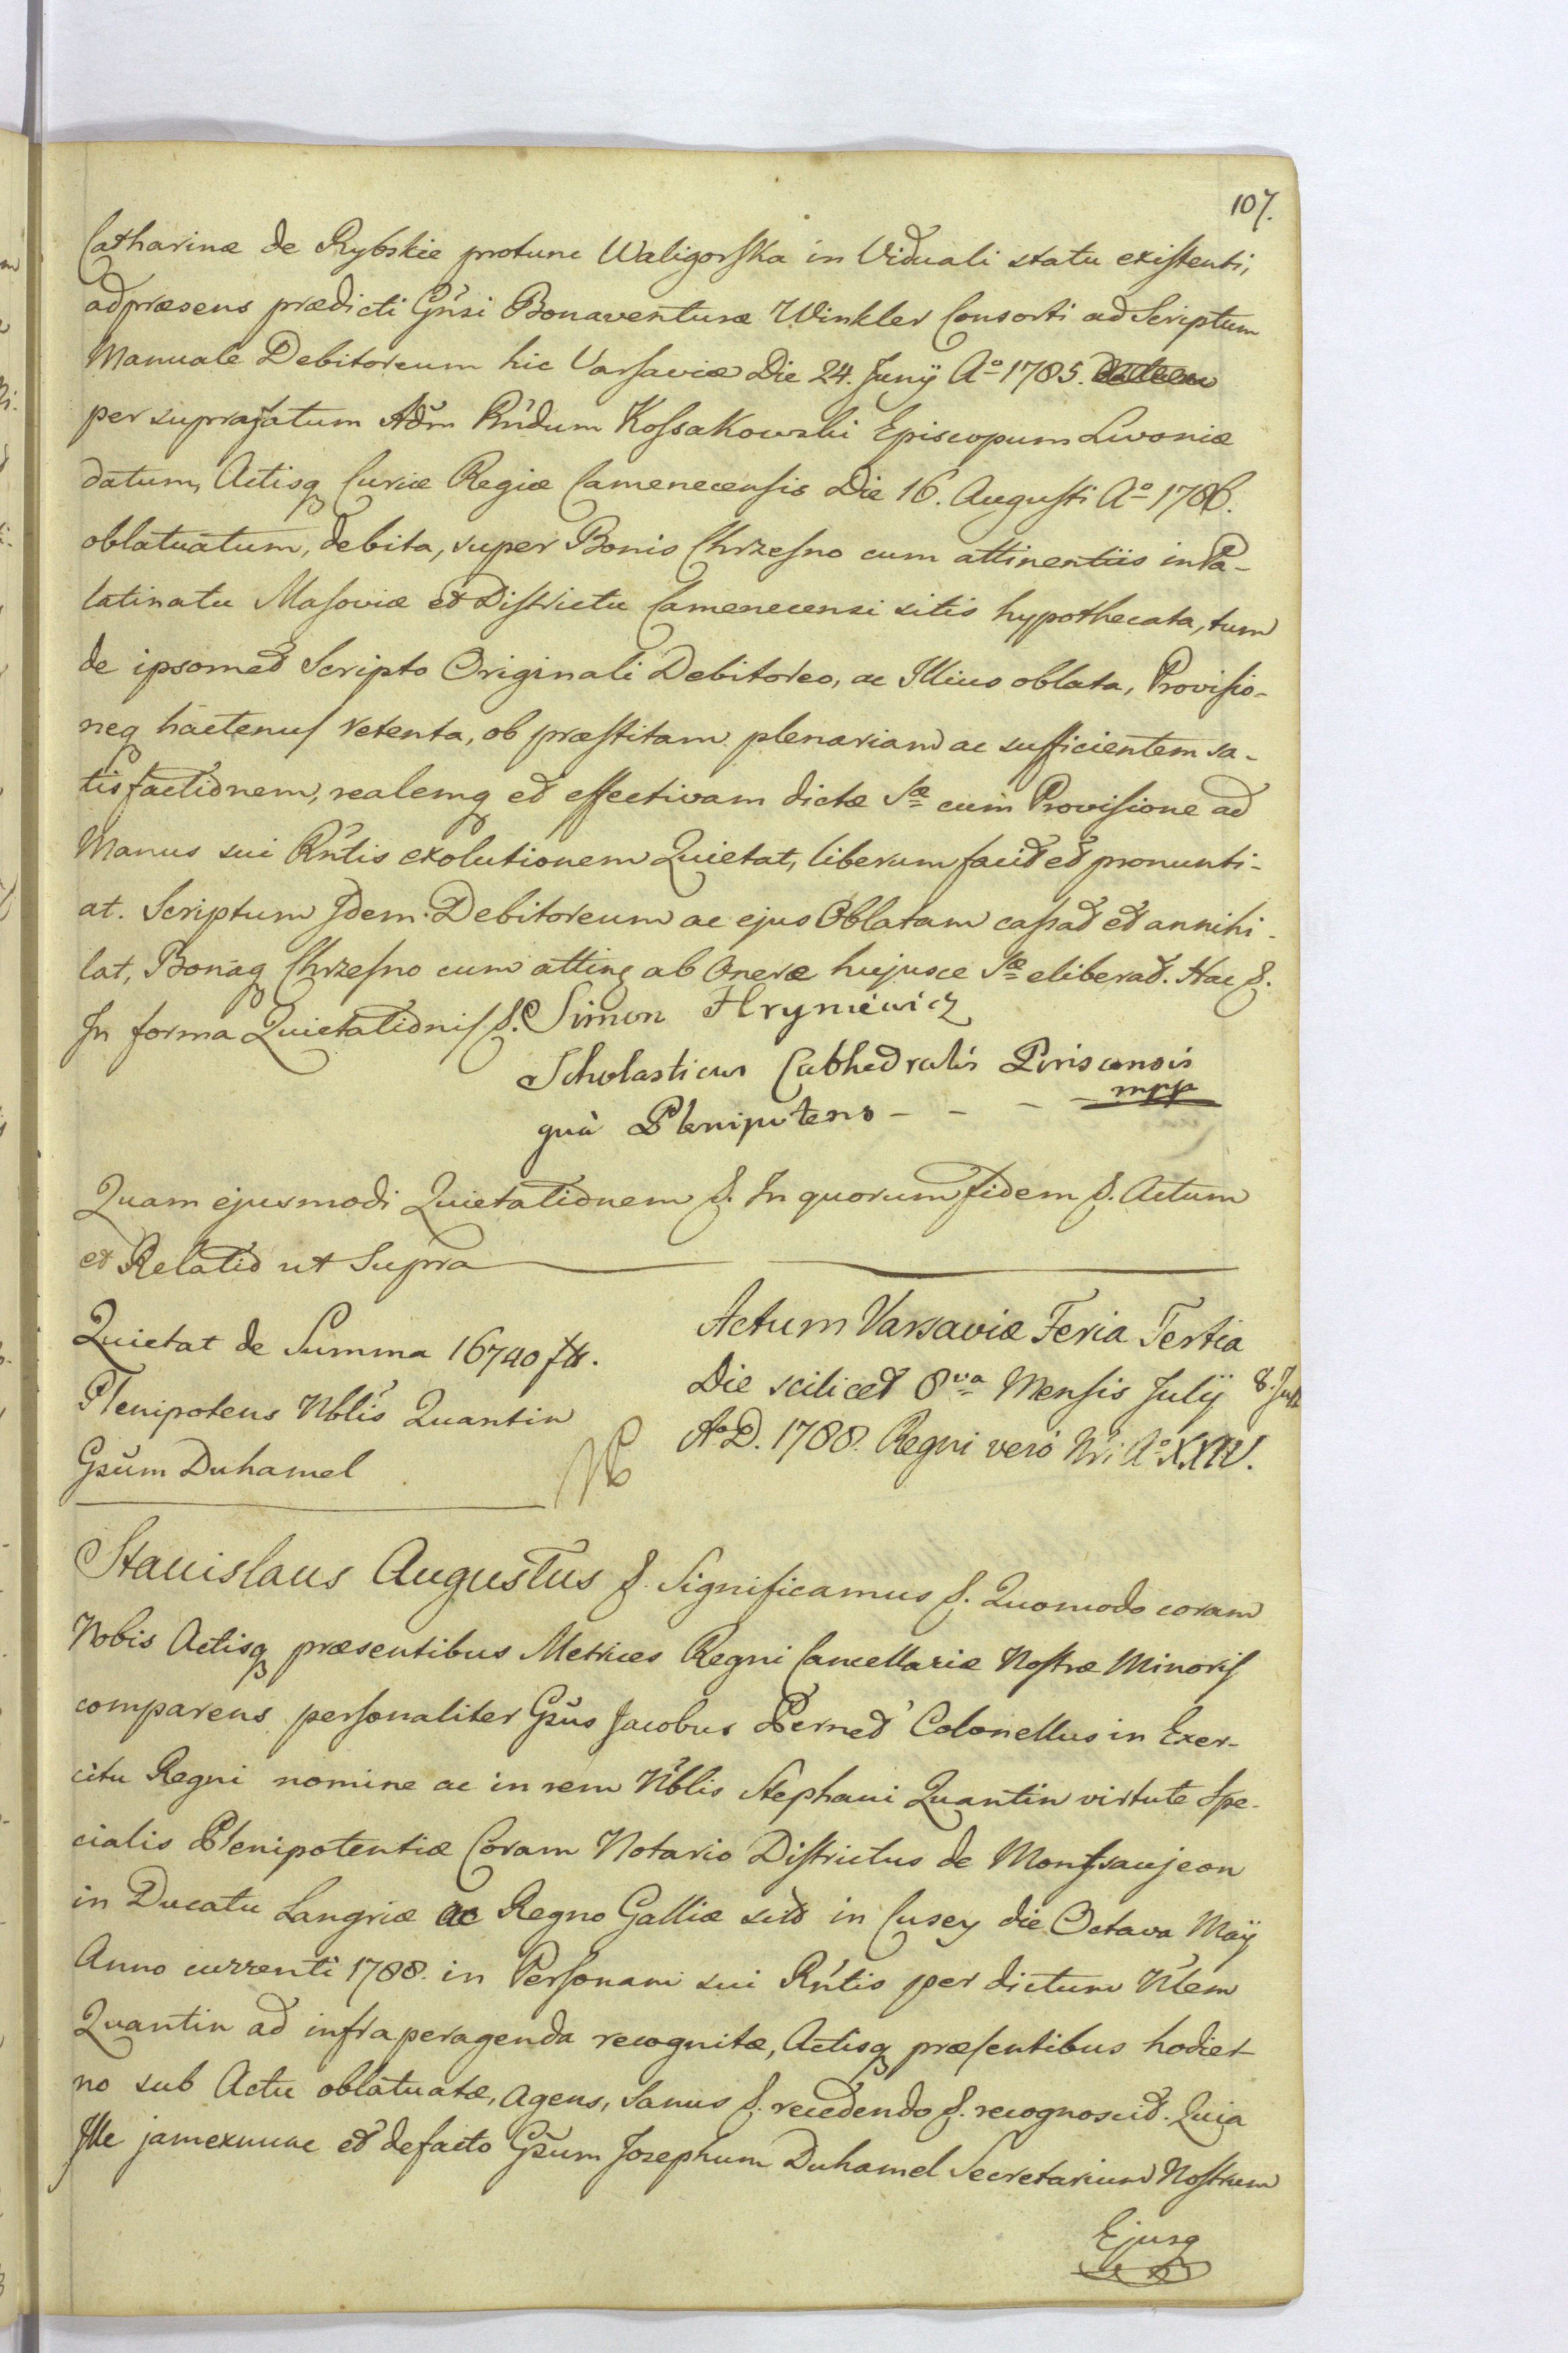 107.
Catharinæ de Rybskie protunc Waligorska in Viduali statu existenti,
adpræsens prædicti Gn̄si Bonaventuræ Winkler Consorti ad Scriptum
Manuale Debitoreum hic Varsaviæ Die 24. Junÿ Aº 1785.
per suprafatum Adm̄ Rn̄dum Kossakowski Episcopum Livoniæ
datum, Actisq Curiæ Regiæ Camenecensis Die 16. Augusti Aº 1786.
oblatuatum, debita, super Bonis Chrzesno cum attinentiis in Pa-
latinatu Masoviæ et Districtu Camenecensi sitis hypothecata, tum
de ipsomet Scripto Originali Debitoreo, ac Illius oblata, Provisio-
neq hactenus retenta, ob præstitam plenariam ac sufficientem sa-
tisfactionem, realemq et effectivam dictæ Sæ cum Provisione ad
Manus sui Rn̄tis exolutionem Quietat, liberum facit et pronunti-
at. Scriptum Idem Debitoreum ac ejus Oblatam cassat et annihi-
lat, Bonaq Chrzesno cum atting ab Onere hujusce Sæ eliberat. Hac &.
In forma Quietationis &. Simon Hryniewicz
Scholasticus Cathedralis Pinscensis
quà Plenipotens - - - - mpp
Quam ejusmodi Quietationem &. In quorum fidem &. Actum
et Relatio ut Supra
Quietat de Summa 16740 ft.
Plenipotens Nblis Quantin
Gsūm Duhamel
Actum Varsaviæ Feria Tertia
Die scilicet 8va Mensis Julÿ
8. Jul
Aº D. 1788. Regni verò Nr̄i Aº XXIV.
Stanislaus Augustus &. Significamus &. Quomodo coram
Nobis Actisq præsentibus Metrices Regni Cancellariæ Nostræ Minoris
comparens personaliter Gsūs Jacobus Pernet Colonellus in Exer-
citu Regni nomine ac in rem Nblis Stephani Quantin virtute Spe-
cialis Plenipotentiæ Coram Notario Districtus de Montsaujeon
in Ducatu Langriæ ac Regno Galliæ sito in Cusey die Octava Maÿ
Anno currenti 1788. in Personam sui Rn̄tis per dictum Nlem
Quantin ad infra peragenda recognitæ, Actisq præsentibus hodier-
no sub Actu oblatuatæ, agens, sanus &. recedendo &. recognoscit. Quia
Ille jamexnunc et defacto Gsūm Josephum Duhamel Secretarium Nostrum
Ejusq